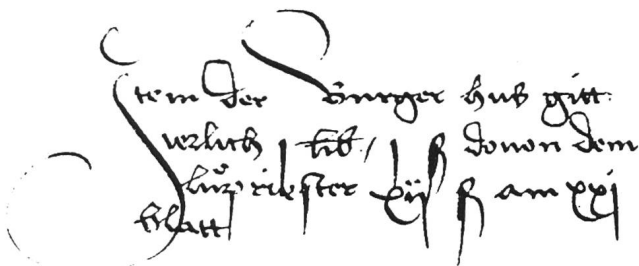 Item der Burger huß gitt
ierlich ß douon dem
lüpriester xij ß am xxj
blatt